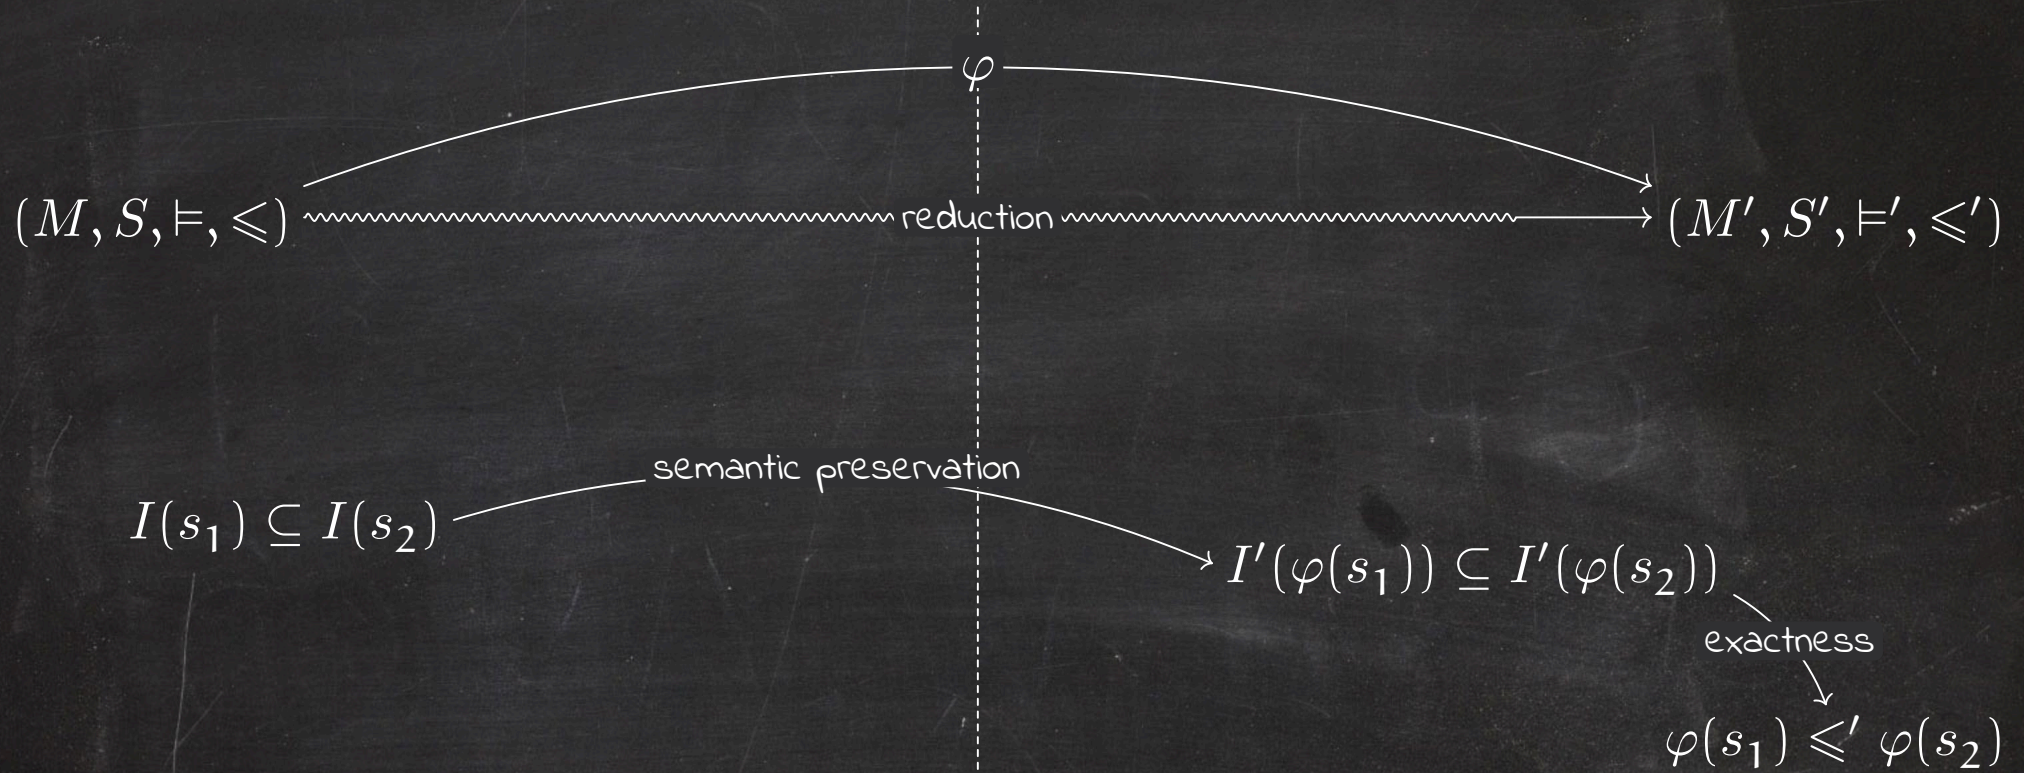 φ
(M, S, ⊨, ⩽) reduction (M′, S′, ⊨′, ⩽′)
semantic preservation
I(s₁) ⊆ I(s₂)
I′(φ(s₁)) ⊆ I′(φ(s₂))
exactness
φ(s₁) ⩽′ φ(s₂)